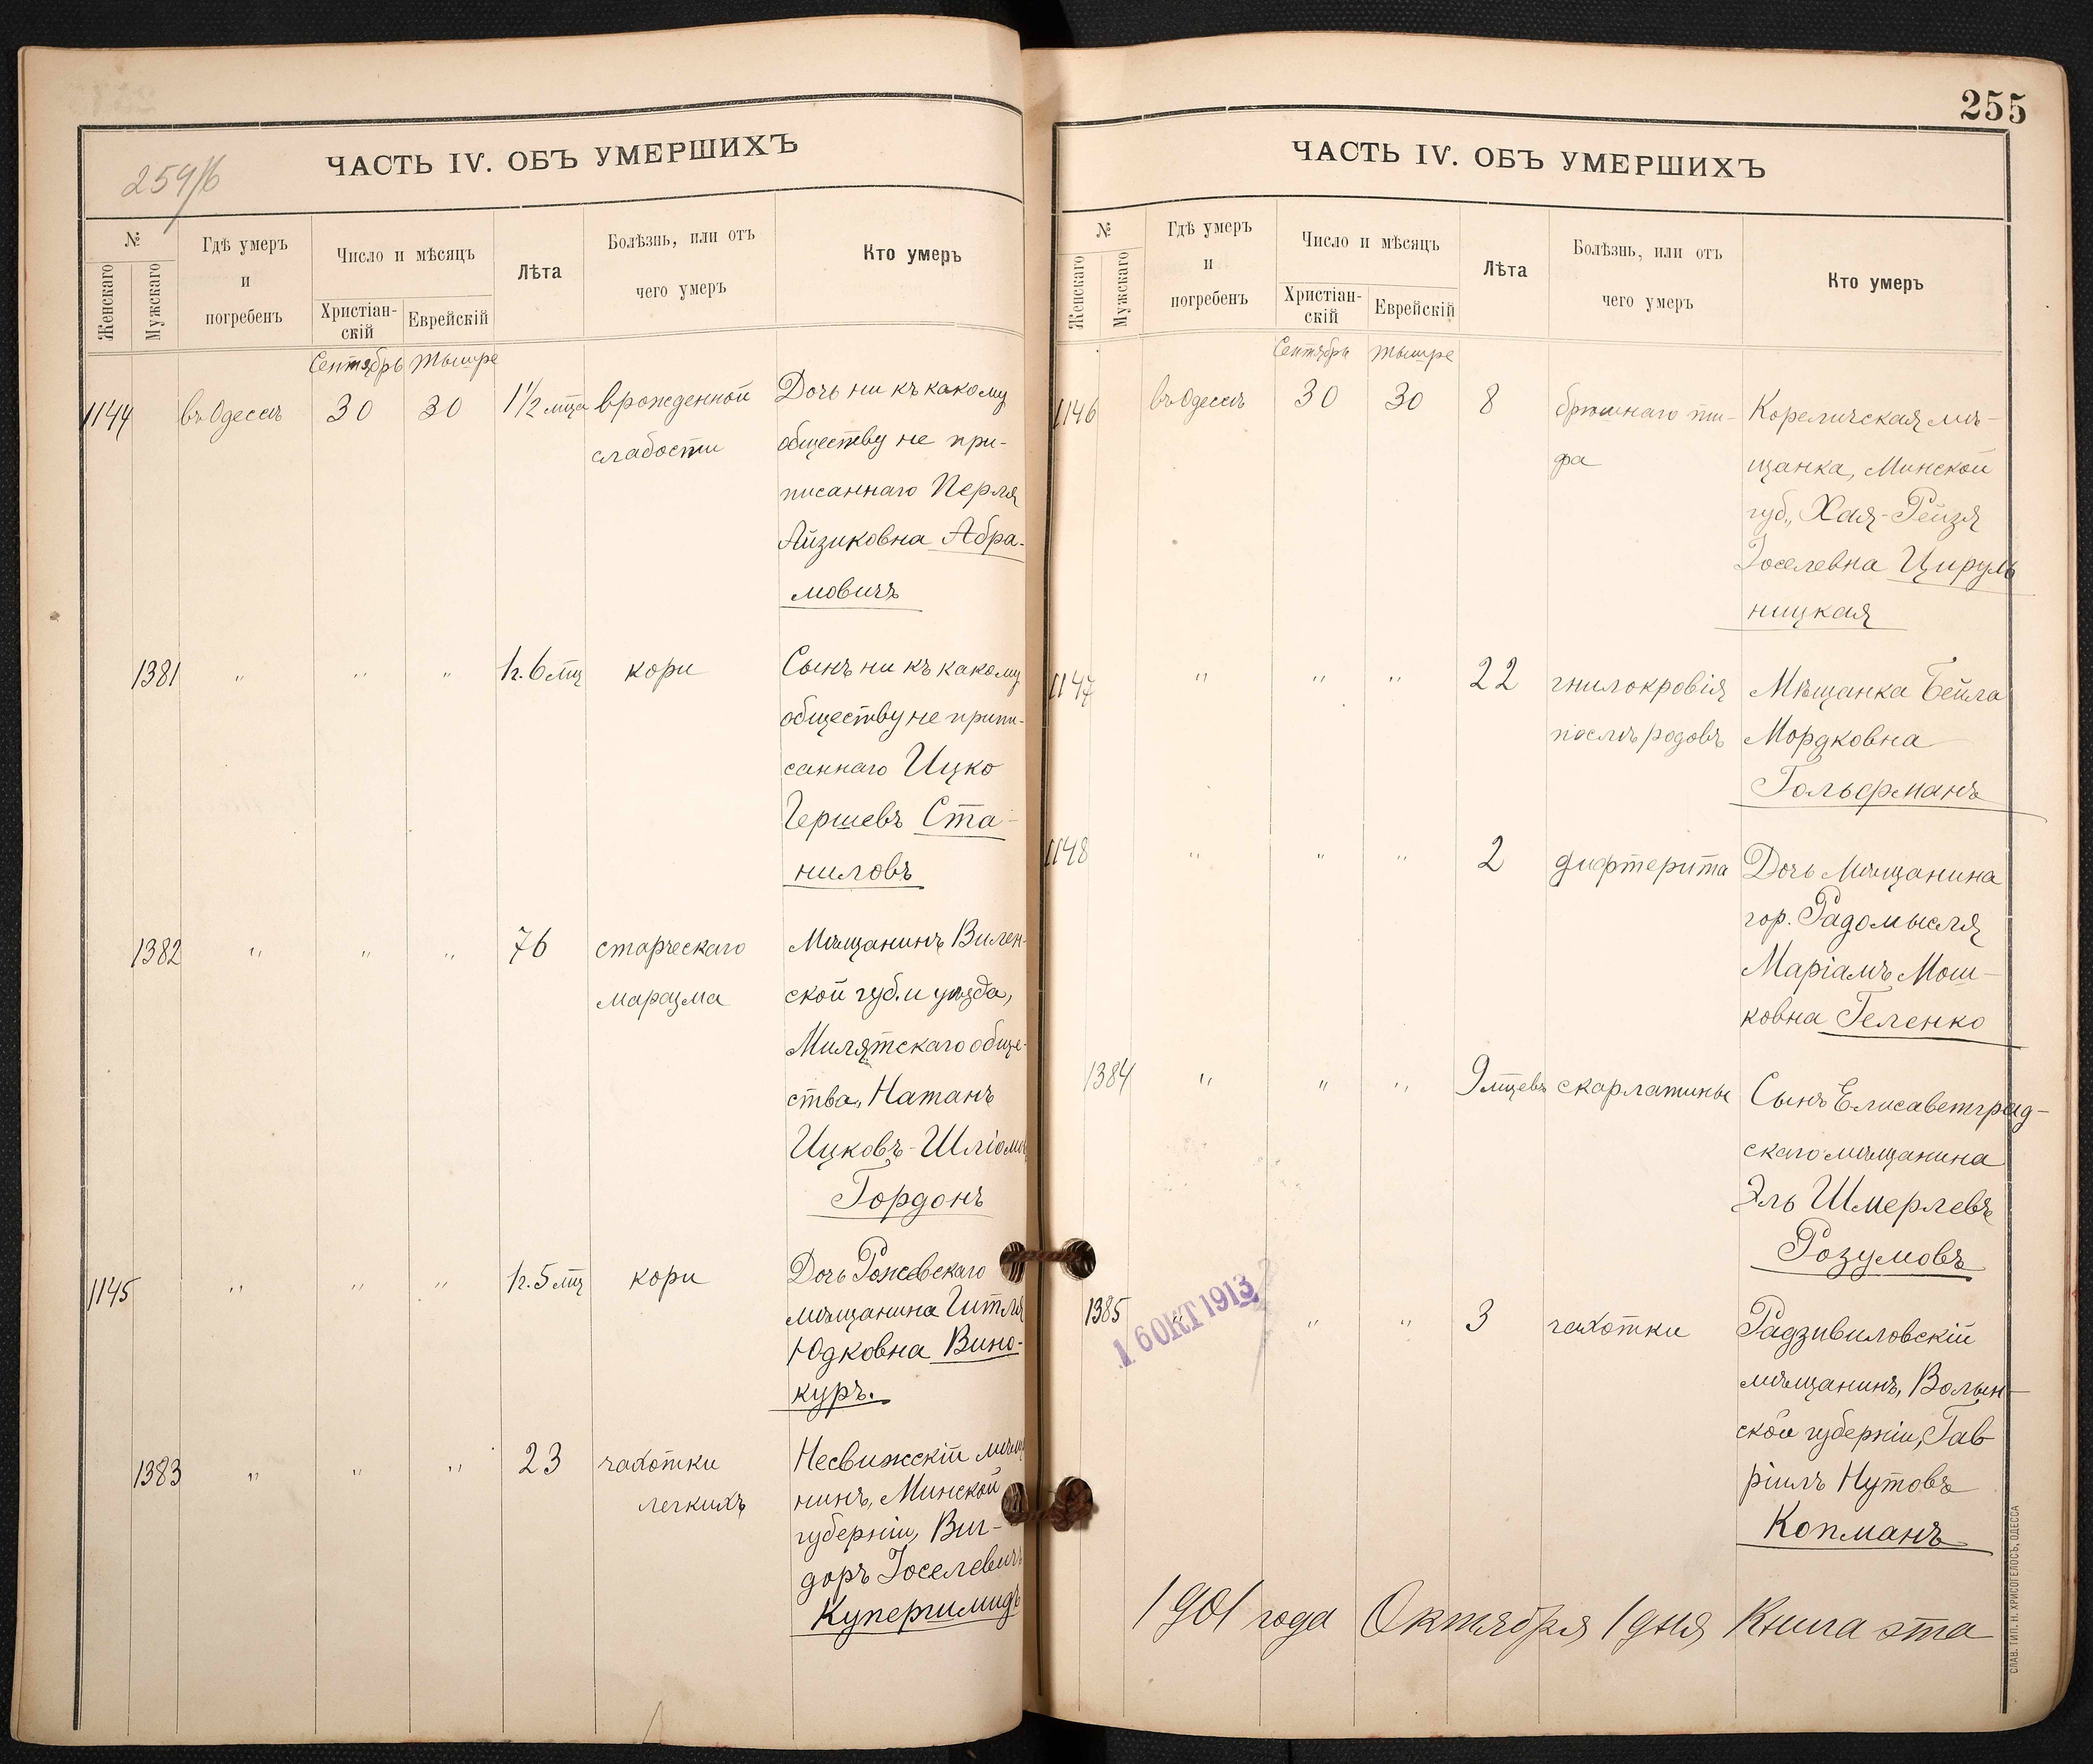 254/б
ЧАСТЬ IV. ОБЪ УМЕРШИХЪ
№
Женскаго
Мужскаго
Гдѣ умеръ
и
погребенъ
Число и мѣсяцъ
Христіан-
скій
Еврейскій
Лѣта
Болѣзнь, или отъ
чего умеръ
Кто умеръ
Сентябрь Тышре
1144 въ Одессѣ 30 30 1½ мца врожденной
слабости
Дочь ни къ какому
обществу не при-
писаннаго Перля
Айзиковна Абра-
мовичъ
1381 " " " 1г. 6 мц кори
Сынъ ни къ какому
обществу не припи-
саннаго Ицко
Гершевъ Ста-
ниловъ
1382 " " " 76 старческаго
маразма
Мѣщанинъ Вилен-
ской губ. и уѣзда,
Милятскаго обще-
ства, Натанъ
Ицковъ-Шліома
Гордонъ
1145 " " " 1г. 5 мц кори
Дочь Рожевскаго
мѣщанина Гитля
Юдковна Вино-
куръ.
1383 " " " 23 чахотки
легкихъ
Несвижскій мѣща
нинъ, Минской
губерніи, Виг-
доръ Іоселевичъ
Купершмидъ
255
ЧАСТЬ IV. ОБЪ УМЕРШИХЪ
№
Женскаго
Мужскаго
Гдѣ умеръ
и
погребенъ
Число и мѣсяцъ
Христіан-
скій
Еврейскій
Лѣта
Болѣзнь, или отъ
чего умеръ
Кто умеръ
Сентябрь Тышре
1146 въ Одессѣ 30 30 8 брюшнаго ти-
фа
Кореличская мѣ-
щанка, Минской
губ., Хая-Рейзя
Іоселевна Цируль
ницкая
1147 " " " 22 гнилокровія
послѣ родовъ
Мѣщанка Бейла
Мордковна
Гольфманъ
1148 " " " 2 дифтерита
Дочь Мѣщанина
гор. Радомысля
Маріамъ Мош-
ковна Геленко
1384 " " " 9 мцевъ скарлатины
Сынъ Елисаветград-
скаго мѣщанина
Эль Шмерлевъ
Розумовъ
1385 " " " 3 чахотки
Радзивиловскій
мѣщанинъ, Волын-
ской губерніи, Гав
ріилъ Нутовъ
Копманъ
16 ОКТ 1913
1901 года Октября 1 дня Книга эта
СЛАВ. ТИП. Н. ХРИСОГЕЛОСЪ, ОДЕССА